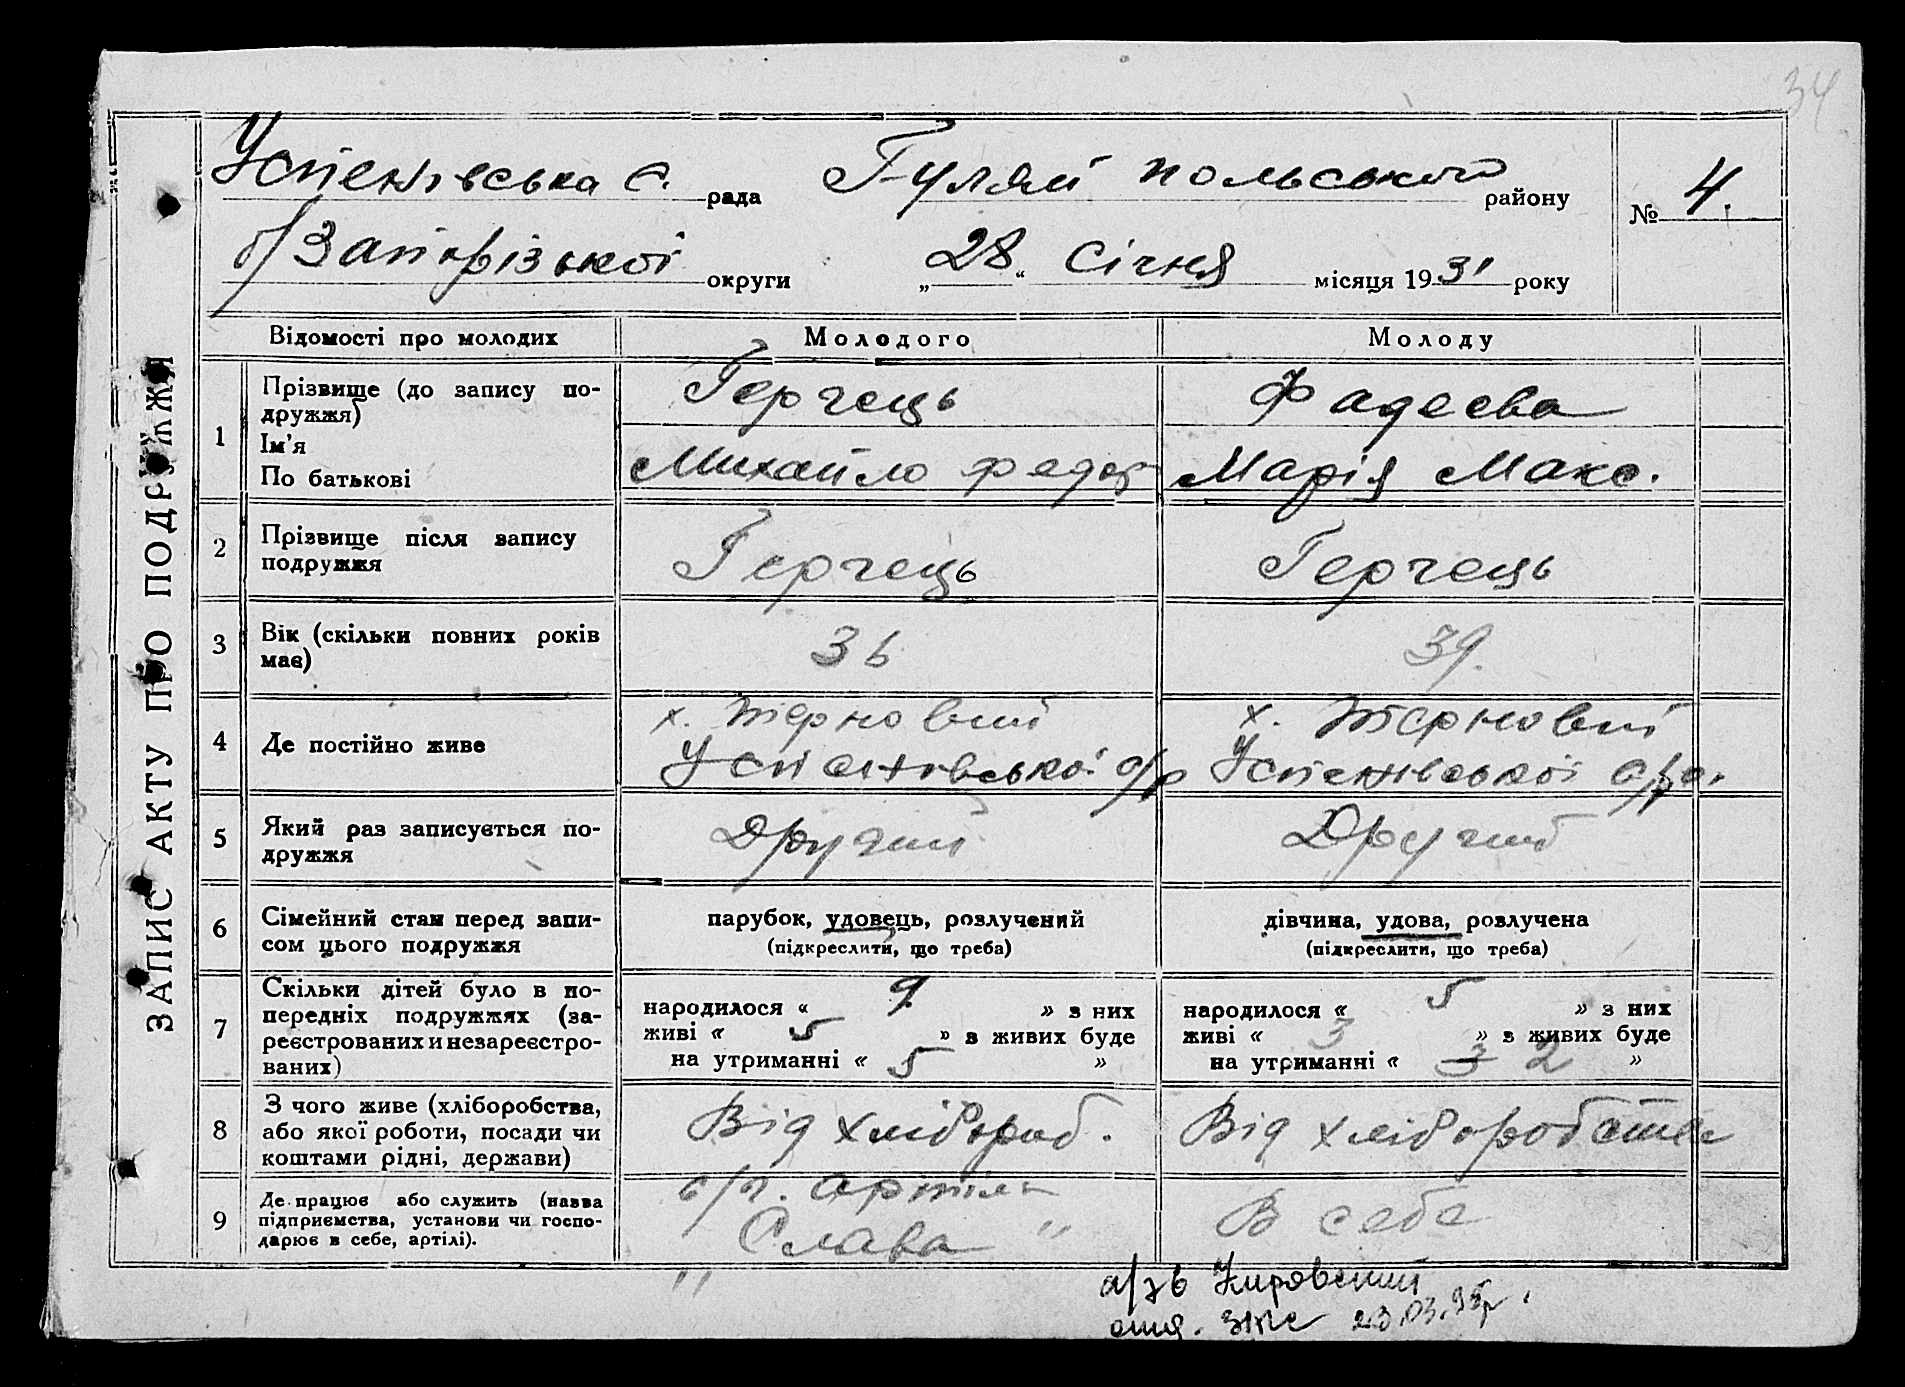 34
Успенівська с. рада Гуляй польського району № 4.
б/Запорізької округи „28“ Січня місяця 1931 року
ЗАПИС АКТУ ПРО ПОДРУЖЖЯ
Відомості про молодих Молодого Молоду
1 Прізвище (до запису по-
дружжя)
Ім'я
По батькові
Герчець Фадеева
Михайло Федор Марія Макс.
2 Прізвище після запису
подружжя
Герчець Герчець
3 Вік (скільки повних років
має)
36 39.
4 Де постійно живе
х. Терновий х. Терновий
Успенівської с/р Успенівської с/р.
5 Який раз записується по-
дружжя
Другий Другий
6 Сімейний стан перед запи-
сом цього подружжя
парубок, удовець, розлучений дівчина, удова, розлучена
(підкреслити, що треба) (підкреслити, що треба)
7 Скільки дітей було в по-
передніх подружжях (за-
реєстрованих и незареєстро-
ваних)
народилося « 9 » з них народилося « 5 » з них
живі « 5 » з живих буде живі « 3 » з живих буде
на утриманні « 5 » на утриманні « 3 2 »
8 З чого живе (хліборобства,
або якої роботи, посади чи
коштами рідні, держави)
Від хлібороб. Від хліборобства
9 Де працює або служить (назва
підприємства, установи чи госпо-
дарює в себе, артілі).
с/г. артіль В себе
„ Слава “
а/зв Кировский
отд. ЗАГС 23.03.95р.